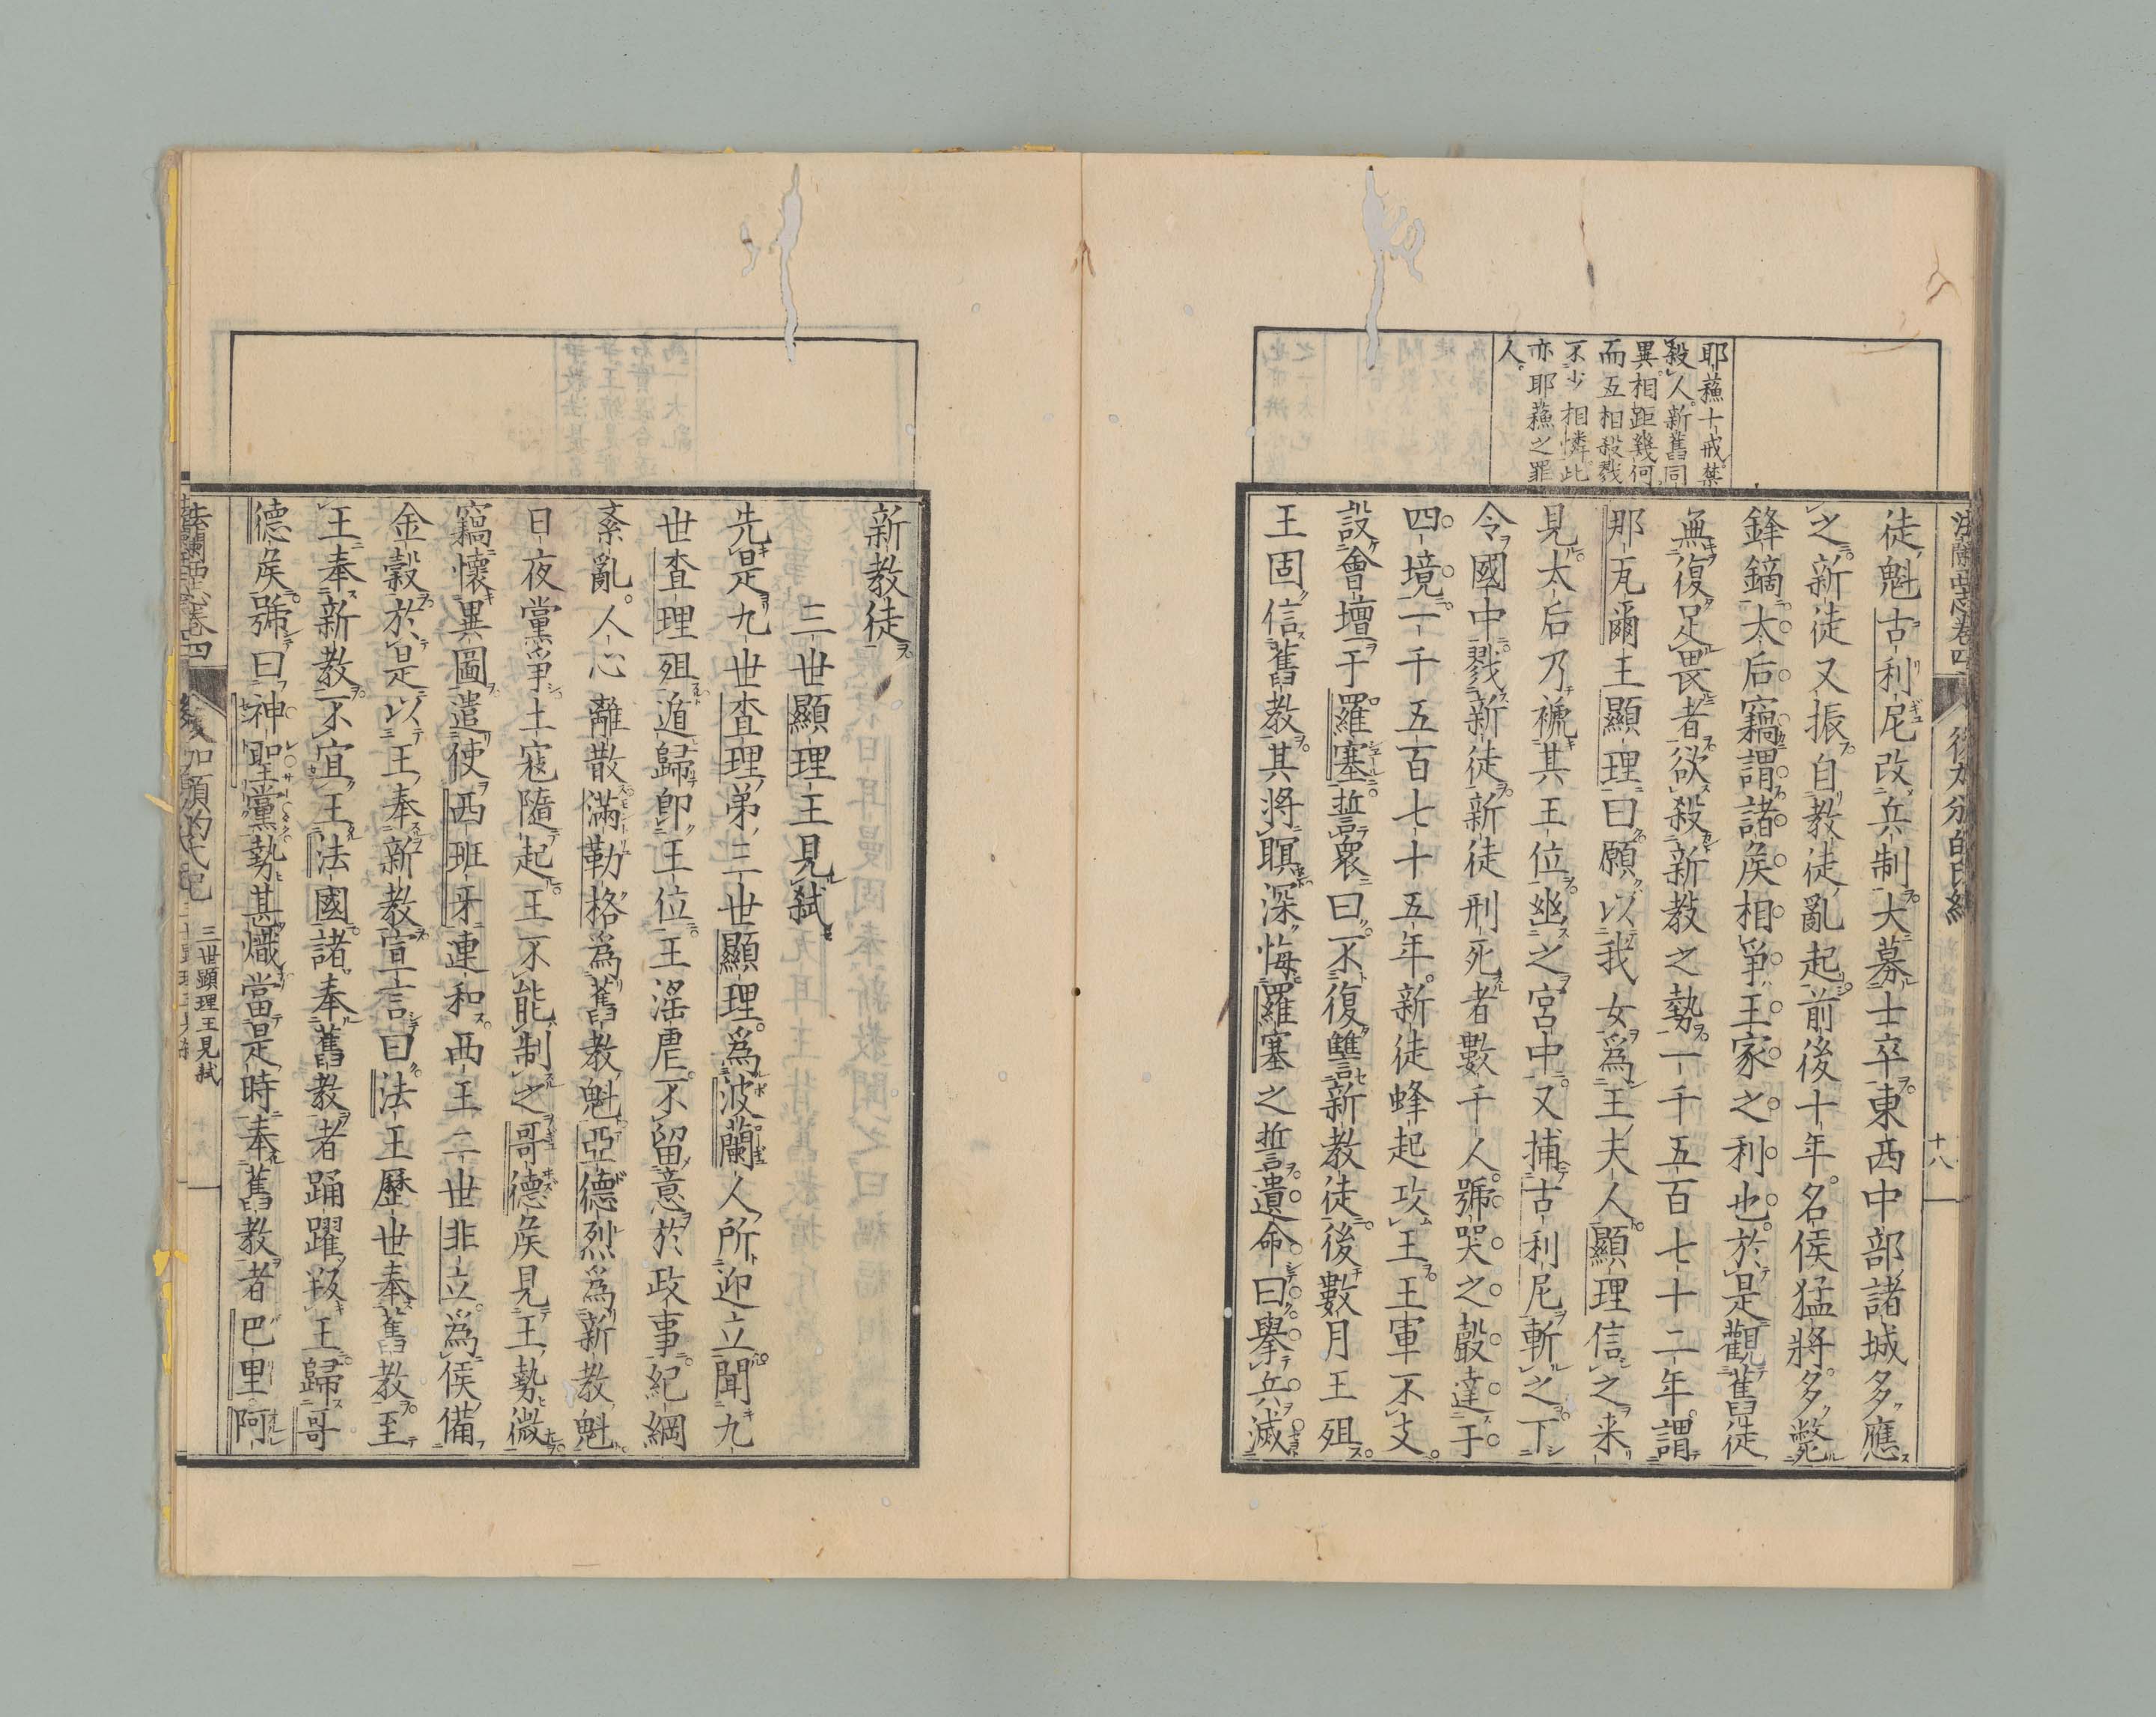 耶蘇十戒禁
殺人新舊同
異相距幾何
而互相殺戮
不少相憐此
亦耶蘇之罪
人
十八
徒魁古利尼改兵制大募士卒東西中部諸城多應
之新徒又振自教徒亂起前後十年名侯猛將多斃
鋒鏑太后竊謂諸侯相爭王家之利也於是觀舊徒
無復足畏者欲殺新教之勢一千五百七十二年謂
那瓦爾王顯理曰願以我女爲王夫人顯理信之来
見太后乃褫其王位幽之宮中又捕古利尼斬之下
令國中戮新徒新徒刑死者數千人號哭之聲達于
四境一千五百七十五年新徒蜂起攻王王軍不支
設會壇于羅塞誓衆曰不復讐新教徒後數月王殂
王固信舊教其將瞑深悔羅塞之誓遺命曰擧兵滅
新教徒
三世顯理王見弑
先是九世查理弟三世顯理爲波蘭人所迎立聞九
世查理殂遁歸卽王位王淫虐不留意於政事紀綱
紊亂人心離散滿勒格爲舊教魁亞德烈爲新教魁
日夜黨爭土寇隨起王不能制之哥德侯見王勢微
竊懷異圖遣使西班牙連和西王二世非立爲侯備
金穀於是以王奉新教宣言曰法王歷世奉舊教至
王奉新教不宜王法國諸奉舊教者踊躍叛王歸哥
德侯號曰神聖黨勢甚熾當是時奉舊教者巴里阿
法蘭西志卷四
三世顯理王見弑